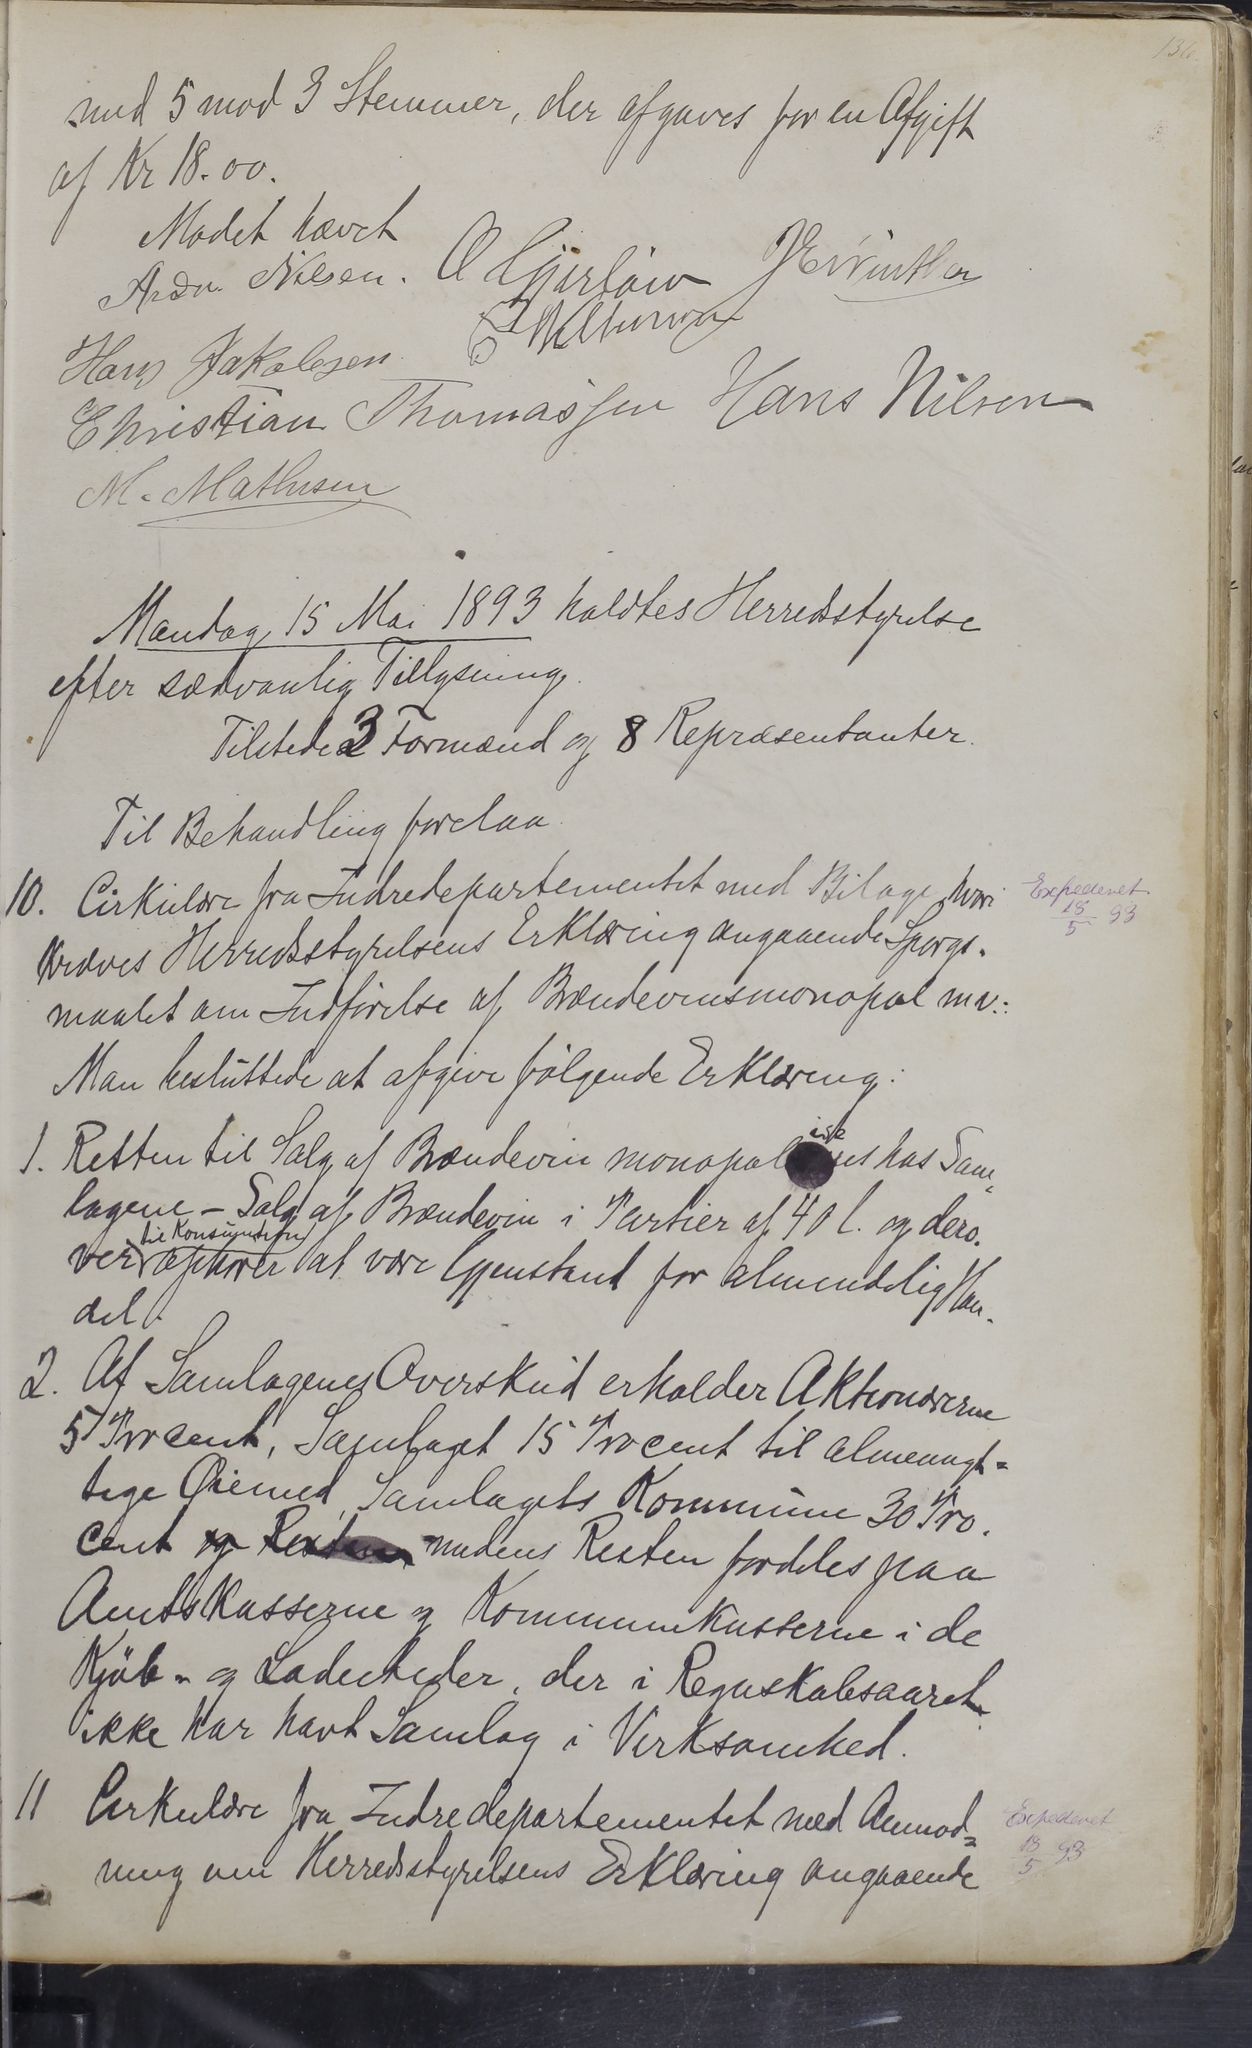 136
med 5 mod 3 Stemmer, der afgaves for en Afgift
af Kr 18.00.
Mødet hævet
Andr. Nilsen. O Gjerløw J Evinther
Hans Jakobsen
Christian Thomassen Hans Nilsen
M. Mathisen
Mandag 15 Mai 1893 holdtes Herredsstyrelse
efter sædvanlig Tillysning.
Tilstede 3 Formænd og 8 Repræsentanter.
Til Behandling forelaa
10. Cirkulære fra Indredepartementet med Bilage, hvori
Expederet
18/5 93
kræves Herredsstyrelsens Erklæring angaaende Spørgs-
maalet om Indførelse af Brændevinsmonopol mv.:
Man besluttede at afgive følgende Erklæring:
1. Retten til Salg af Brændevin monopoliseres hos Sam-
lagene – Salg af Brændevin i Partier af 40 l. og dero-
til Konsumtion
ver ophører at være Gjenstand for almindelig Han-
del.
2. Af Samlagenes Overskud erholder Aktionærerne
5 Procent, Samlaget 15 Procent til almennyt-
tige Øiemed, Samlagets Kommune 30 Pro-
cent og Resten medens Resten fordeles paa
Amtskasserne og Kommunekasserne i de
Kjøb- og Ladesteder, der i Regnskabsaaret
ikke har havt Samlag i Virksomhed.
11 Cirkulære fra Indredepartementet med Anmod-
Expederet
18/5 93
ning om Herredsstyrelsens Erklæring angaaende